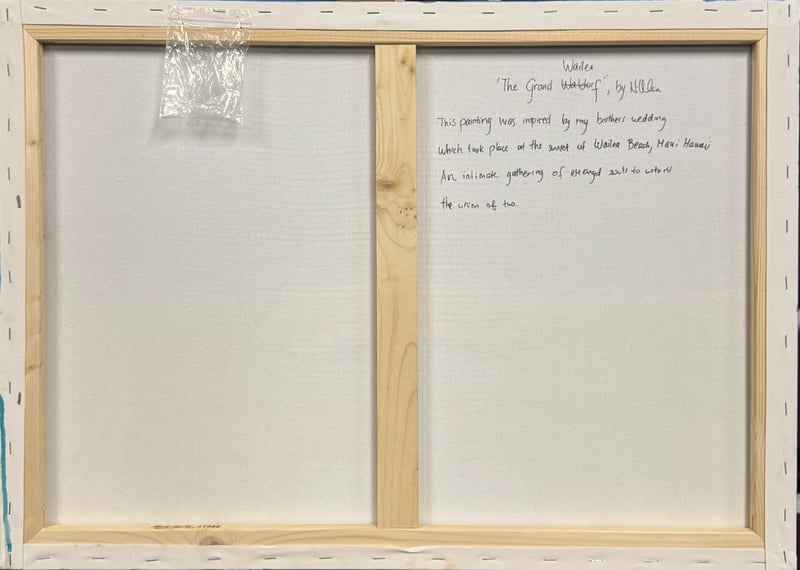 Wailea
"The Grand f", by
This painting was inspired by my brothers wedding
which took place at the sunset of Wailea Beach, Maui Hawaii
An intimate gathering of estranged souls to witness
the union of two.